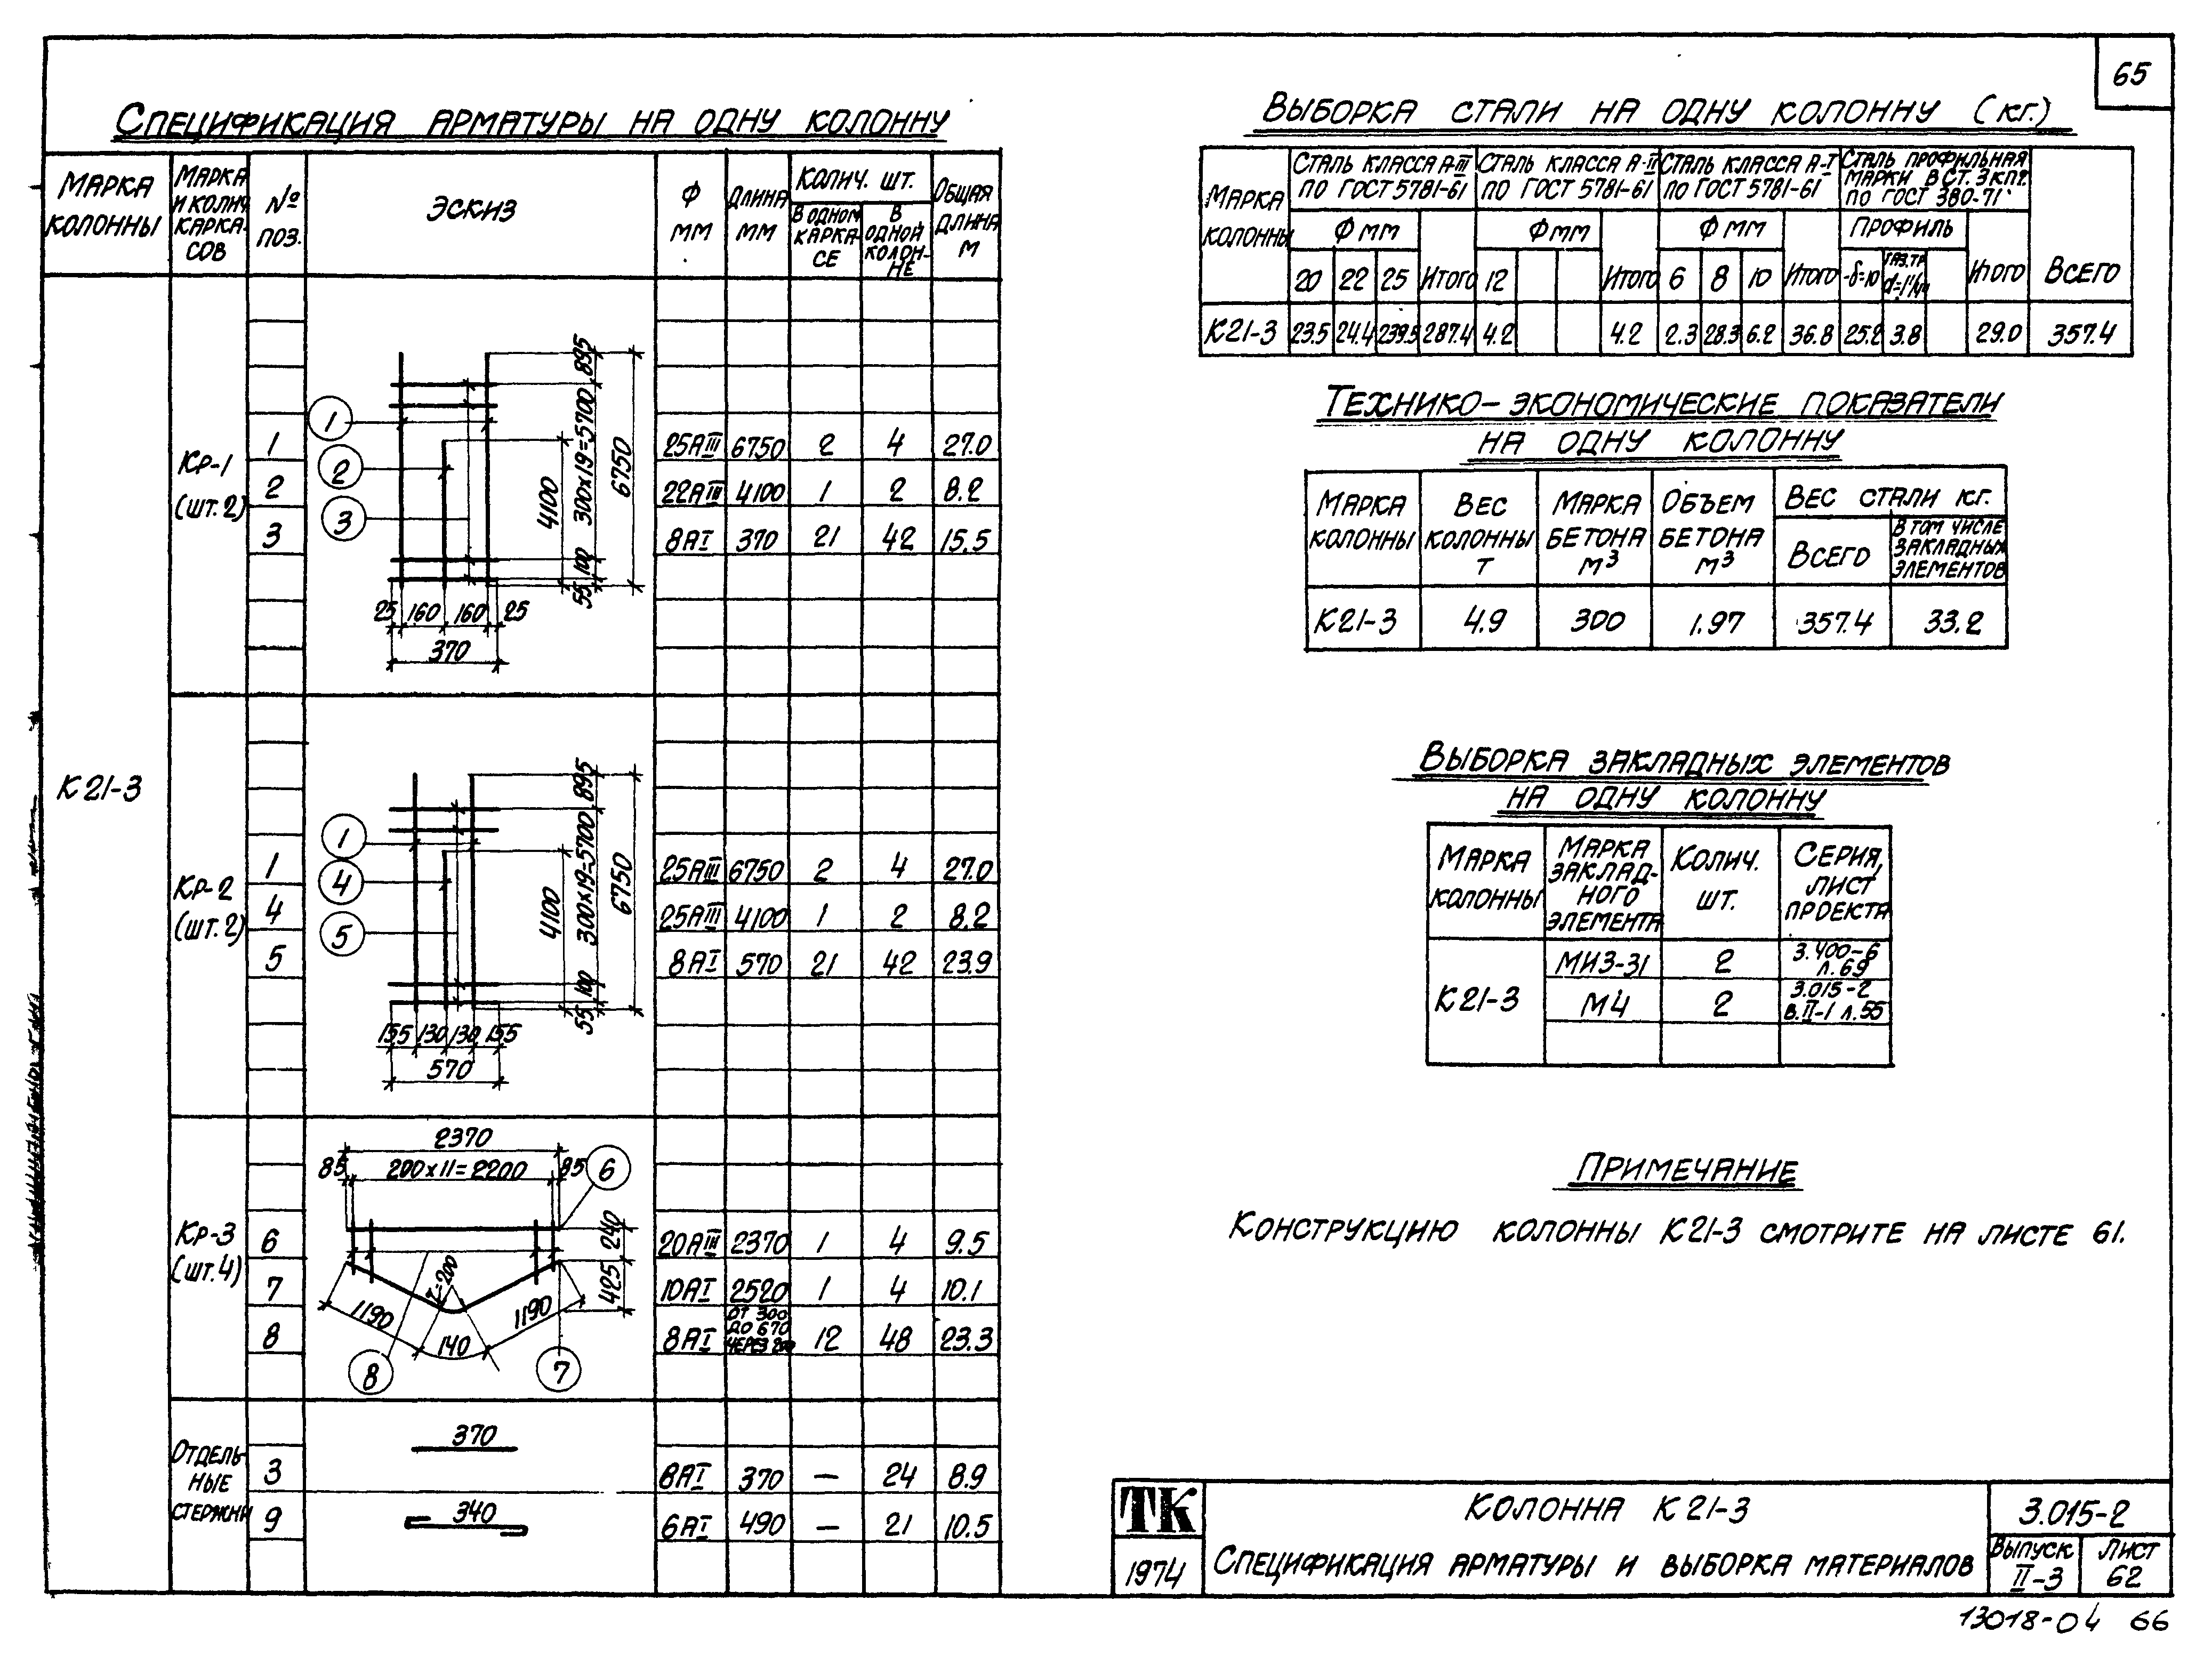 65
Спецификация арматуры на одну колонну
Марка колонны
Марка и колич. каркасов
№ поз.
Эскиз
Ф мм
Длина мм
Колич. шт.
В одном каркасе
В одной колонне
Общая длина м
К21-3
Кр-1 (шт.2)
1 25АIII 6750 2 4 27.0
2 22АIII 4100 1 2 8.2
3 8АI 370 21 42 15.5
1
2
3
895
300х19=5700
100
55
4100
6750
25 160 160 25
370
Кр-2 (шт.2)
1 25АIII 6750 2 4 27.0
4 25АIII 4100 1 2 8.2
5 8АI 570 21 42 23.9
1
4
5
895
300х19=5700
100
55
4100
6750
155 130 130 155
570
Кр-3 (шт.4)
6 20АIII 2370 1 4 9.5
7 10АI 2520 1 4 10.1
8 8АI от 300 до 670 через 12 48 23.3
2370
85 200х11=2200 85
6
240
425
r=200
1190 140 1190
8
7
Отдельные стержни
370
3 8АI 370 — 24 8.9
340
9 6АI 490 — 21 10.5
Выборка стали на одну колонну (кг.)
Марка колонны
Сталь класса А-III по ГОСТ 5781-61
Сталь класса А-II по ГОСТ 5781-61
Сталь класса А-I по ГОСТ 5781-61
Сталь профильная марки В Ст.3кп2 по ГОСТ 380-71
Ф мм Ф мм Ф мм Профиль
20 22 25 Итого 12 Итого 6 8 10 Итого -δ=10 Газ.тр. Итого Всего
К21-3 23.5 24.4 239.5 287.4 4.2 4.2 2.3 28.3 6.2 36.8 25.2 3.8 29.0 357.4
Технико-экономические показатели
на одну колонну
Марка колонны
Вес колонны т
Марка бетона м³
Объем бетона м³
Вес стали кг.
Всего
В том числе закладных элементов
К21-3 4.9 300 1.97 357.4 33.2
Выборка закладных элементов
на одну колонну
Марка колонны
Марка закладного элемента
Колич. шт.
Серия, лист проекта
К21-3
МИЗ-31 2 3.400-6 л.69
М4 2 3.015-2 в.II-1 л.55
Примечание
Конструкцию колонны К21-3 смотрите на листе 61.
ТК
1974
Колонна К21-3
Спецификация арматуры и выборка материалов
3.015-2
Выпуск II-3
Лист 62
13018-04 66